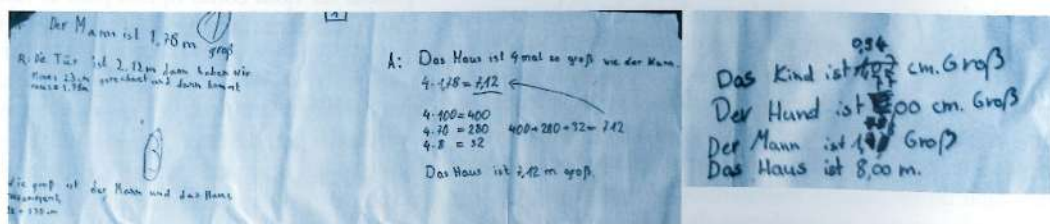 Der Mann ist 1,78 m groß
R: Die Tür ist 2,12m dann haben wir
gerechnet und dann kommt
Wie groß ist der Mann und das Haus
1
A: Das Haus ist 4 mal so groß wie der Mann.
4·1,78 = 7,12
4·100=400
4·70 = 280 400+280+32= 712
4·8 = 32
Das Haus ist 7,12 m groß.
0,94
Das Kind ist cm. Groß
Der Hund ist 00 cm. Groß
Der Mann ist 1, Groß
Das Haus ist 8,00 m.